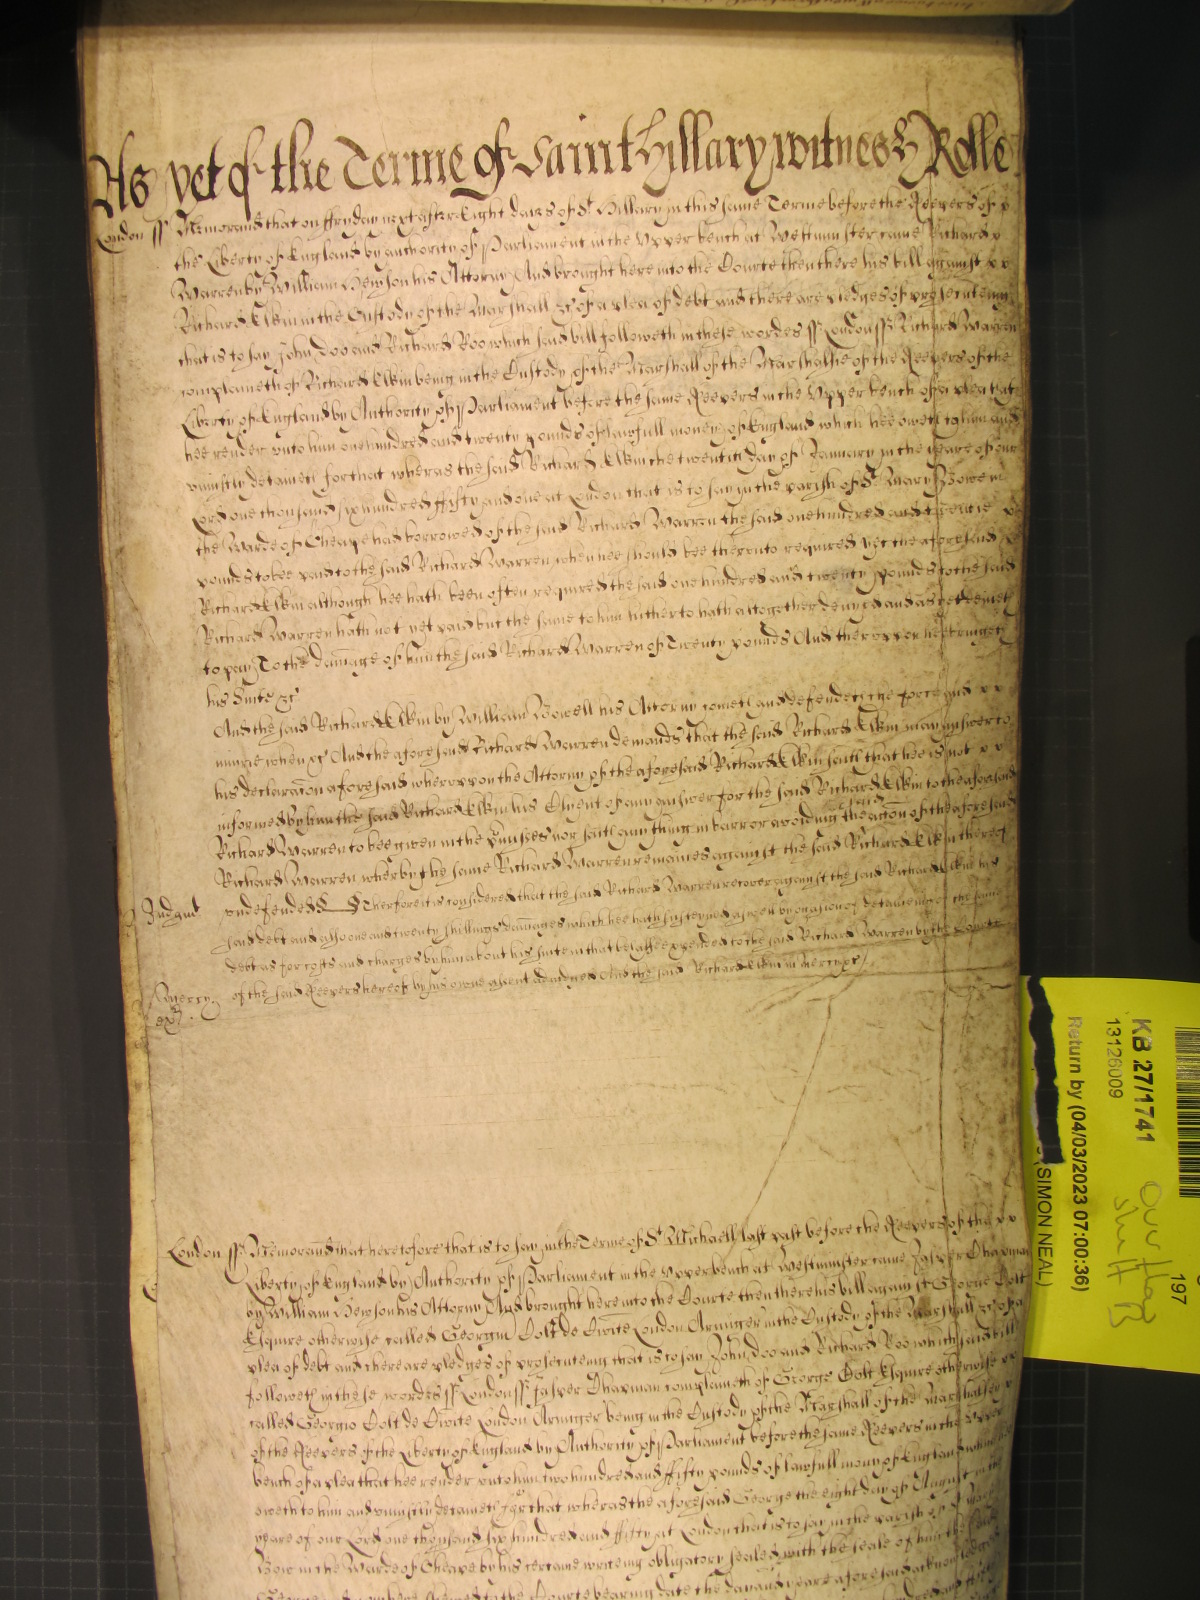 As yet of the Terme of Saint Hillary witnes H Rolle
London ss Memorand that on ffryday next after Eight daies of St Hillary in this same Terme before the Keepers of
the Liberty of England by authority of Parliament in the Upper bench at Westminster came Richard
Warren by William Hewson his Attorny And brought here into the Courte then there his bill against
Richard Elkin in the Custody of the Marshall &c of a plea of debt and there are pledges of prosecuteing
that is to say John Doo and Richard Roo which said bill followeth in these wordes ss London ss Richard Warren
complaineth of Richard Elkin being in the Custody of the Marshall of the Marshalsie of the Keepers of the
Liberty of England by Authority of Parliament before the same Keepers in the Upper bench of a plea that
hee render unto him one hundred and twenty pounds of lawfull money of England which hee oweth to him and
uniustly detaineth for that wheras the said Richard Elkin the twentith day of January in the yeare of our
Lord one thousand six hundred ffifty and one at London that is to say in the parish of St Mary Bowe in
the Warde of Cheape had borrowed of the said Richard Warren the said one hundred and twentie
pounds to bee paid to the said Richard Warren when hee should bee therunto required yet the aforesaid
Richard Elkin although hee hath been often required the said one hundred and twenty pounds to the said
Richard Warren hath not yet paid but the same to him hitherto hath altogether denyed and as yet denieth
to pay To the damage of him the said Richard Warren of Twenty pounds And theruppon hee bringeth
his Suite &c
And the said Richard Elkin by William Bowell his Attorny cometh and defendeth the force and
iniurie when &c And the aforesaid Richard Warren demands that the said Richard Elkin may answer to
his declaracon aforesaid wheruppon the Attorny of the aforesaid Richard Elkin saith that hee is not
informed by him the said Richard Elkin his Clyent of any answer for the said Richard Elkin to the aforesaid
Richard Warren to bee given in the Premises nor saith any thing in barr or avoiding the said accon of the aforesaid
Richard Warren wherby the same Richard Warren remaines against the said Richard Elkin therof
Judgmt undefended Therfore it is considered that the said Richard Warren recover against the said Richard Elkin his
said debt and also one and twenty shillings damages which hee hath susteyned aswell by occasion of deteineing of the same
debt as for costs and charges by him about his suite in that behalfe expended to the said Richard Warren by the Courte
In mercy of the said Keepers hereof by his owne assent adiudged And the said Richard Elkin in Mercy &c
London ss Memorand that heretofore that is to say in the Terme of St Michaell last past before the Keepers of the
Liberty of England by Authority of Parliament in the Upper bench at Westminster came Jasper Chapman
by William Hewson his Attorny And brought here into the Courte then there his bill against George Colt
Esquire otherwise called Georgin Colt de Civite London Armiger in the Custody of the Marshall &c of a
plea of debt and there are pledges of prosecuteing that is to say John Doo and Richard Roo which said bill
followeth in these wordes ss London ss Jasper Chapman complaineth of George Colt Esquire otherwise
called Georgio Colt de Civite London Armiger being in the Custody of the Marshall of the Marshalsey
of the Keepers of the Liberty of England by Authority of Parliament before the same Keepers in the Upper
bench of a plea that hee render unto him two hundred and ffifty pounds of lawfull mony of England which hee
oweth to him and uniustly detaineth for that wheras the aforesaid George the eight day of August in the
yeare of our Lord one thousand six hundred and ffifty at London that is to say in the parish of St Mary
Bow in the Warde of Cheape by his certaine writeing obligatory sealed with the seale of him the said
George and now here shewed to the Courte bearing date the day and yeare aforesaid acknowledged
KB 27/1741
13126009
Return by (04/03/2023 07:00:36)
(SIMON NEAL)
197